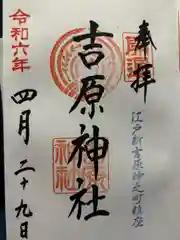 奉拝
江戸新吉原
吉原神社
令和六年
四月二十九日